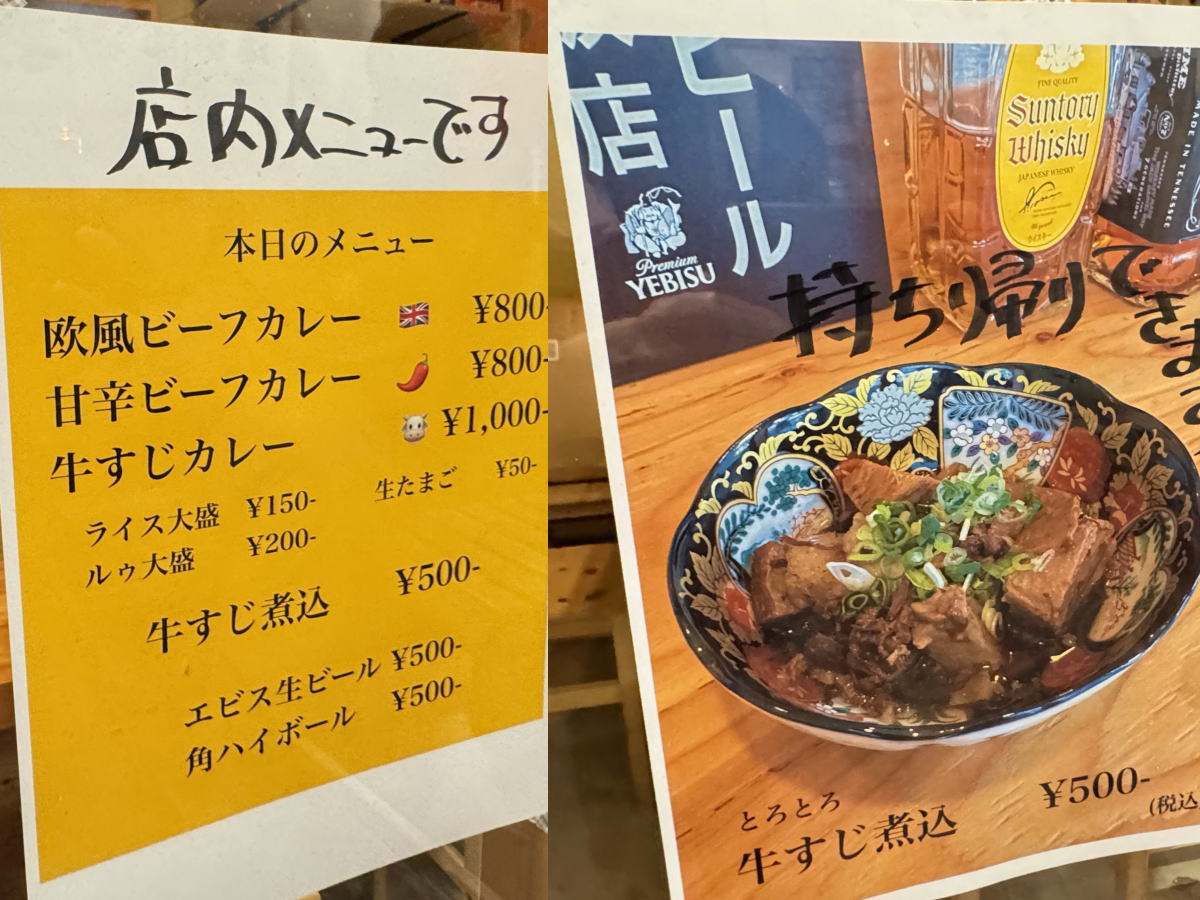 店内メニューです
本日のメニュー
欧風ビーフカレー ¥800-
甘辛ビーフカレー ¥800-
牛すじカレー ¥1,000-
ライス大盛 ¥150- 生たまご ¥50-
ルゥ大盛 ¥200-
牛すじ煮込 ¥500-
エビス生ビール ¥500-
角ハイボール ¥500-
ビール
店
Premium
YEBISU
FINE QUALITY
Suntory
Whisky
JAPANESE WHISKY
ウイスキー
MADE IN TENNESSEE
持ち帰りできます
とろとろ
牛すじ煮込 ¥500-
(税込